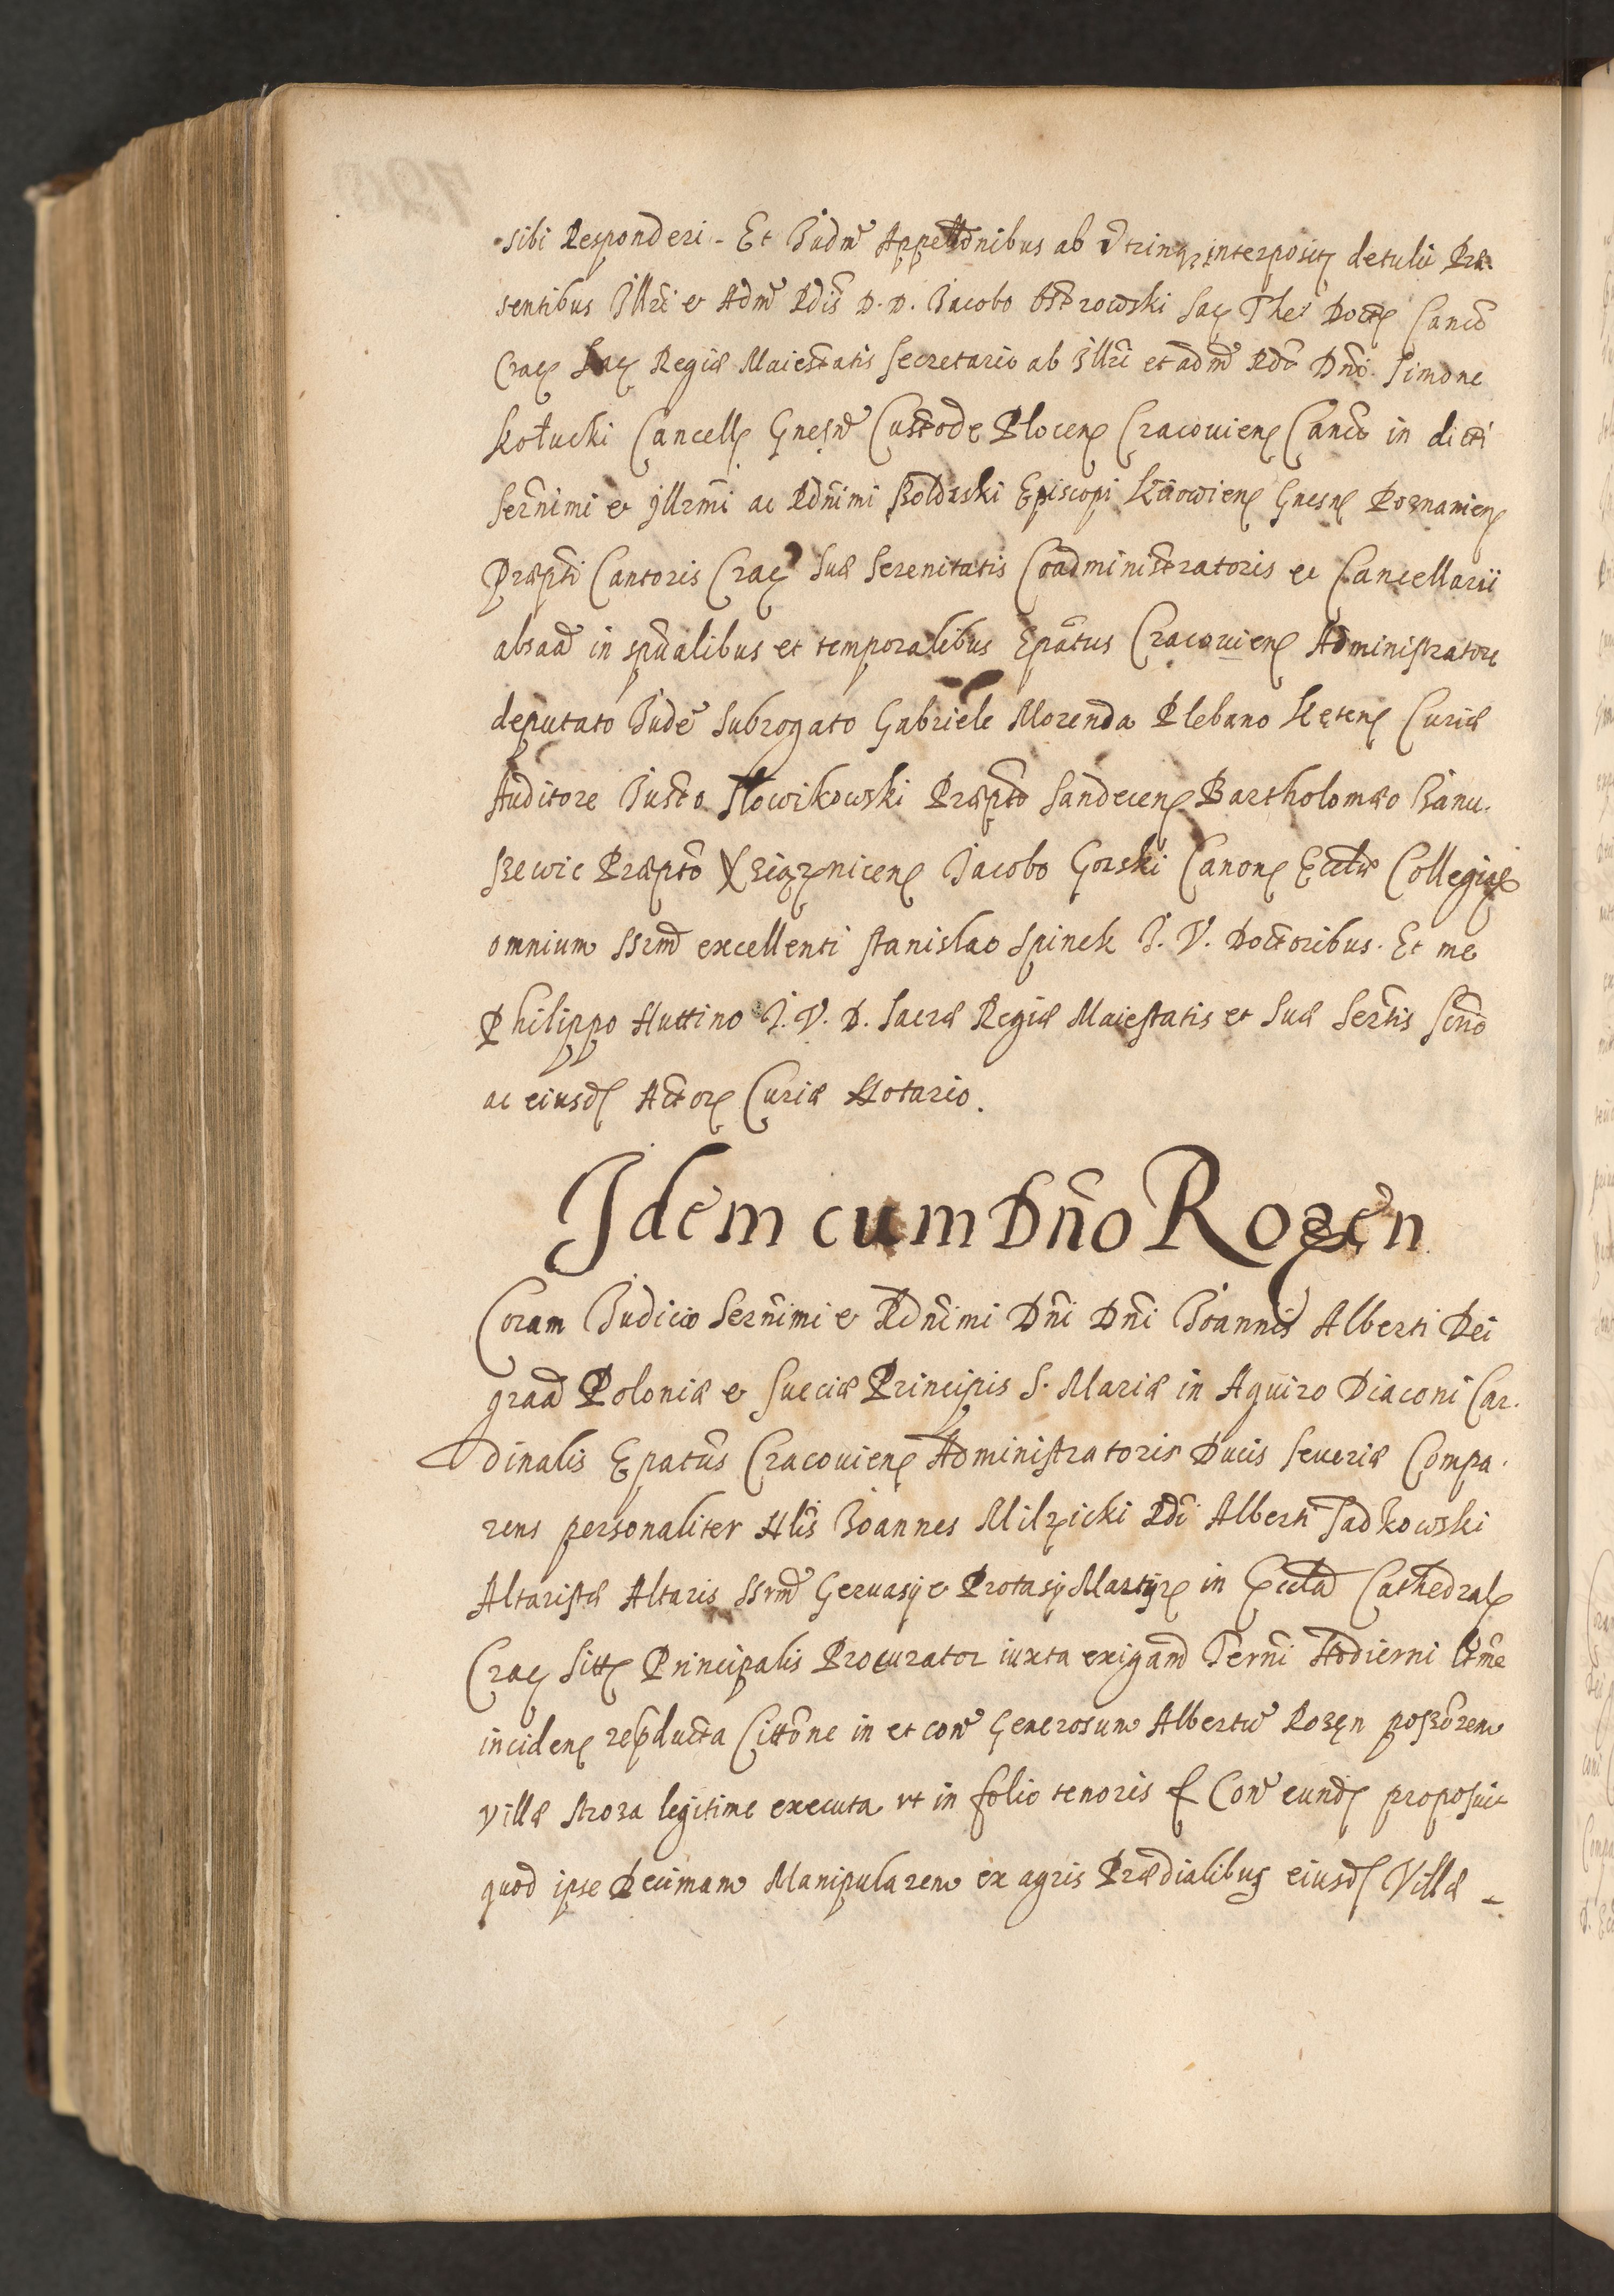 sibi Responderi - Et Judm̃ Appellõnibus ab Vtrinq; interposit; detulit Præ
sentibus Illri et Adm̃ Rdis D. D. Jacobo Ostrowski Sac Theo Doct Canco
Crac Sac Regiæ Maiestatis Secretario ab Illri et adm̃ Rdo Dño Simone
Kołucki Cancell Gnesñ Custode Plocen Cracouien Canco in dicti
Serñimi et Illrmi ac Rdñimi Episcopi Kiiowien Gnesn Poznanien
Præpti Cantoris Crac Suæ Serenitatis Coadministratoris et Cancellarii
absaã in spũalibus et temporalibus Epãtus Cracouien Administratore
deputato Jude Subrogato Gabriele Morenda Plebano Keten Curiæ
Auditore Justo Słowikowski Præpto Sandecen Bartholomæo Janu.
szewic Præpto Xiąznicen Jacobo Gorski Canon Ecclæ Collegiatæ
omnium SSrm̃ excellenti Stanislao Spinek J. V. Doctoribus. Et me
Philippo Huttino J. V. D. Sacræ Regiæ Maiestatis et Suæ Sertis Scño
ac eiusd Actor Curiæ Notario.
Idem cum Dño Rozęn
Coram Judicio Serñimi et Rdñimi Dñi Dñi Joannis Alberti Dei
graã Poloniæ et Sueciæ Principis S. Mariæ in Aquiro Diaconi Car.
dinalis Epatũs Cracouien Administratoris Ducis Seueriæ Compa.
rens personaliter Hlis Joannes Milzicki Rdi Alberti Jadkowski
Altaristæ Altaris SSrm̃ Geruasij et Protasij Martijr in Ecclã Cathedral
Crac Sitt Principalis Procurator iuxta exigañ Termĩ Hodierni
inciden repducta Cittõne in et con̄ Generosum Albertũ Rozęn possõrem
villæ Stroza legitime executa vt in folio tenoris Con̄ eund proposuit
quod ipse Decimam Manipularem ex agris Prædialibus eiusd Villæ -